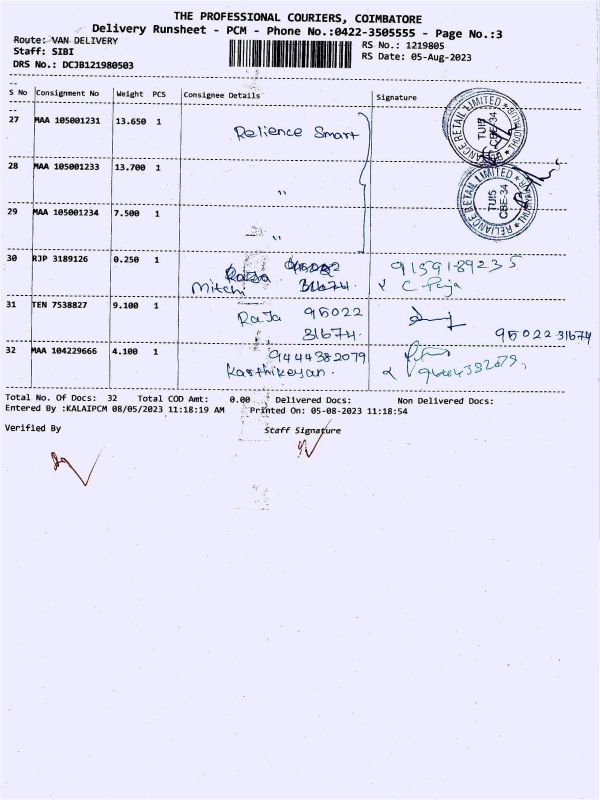 THE PROFESSIONAL COURIERS, COIMBATORE
Delivery Runsheet - PCM - Phone No.:0422-3505555 - Page No.:3
Route: VAN DELIVERY RS No.: 1219805
Staff: SIBI RS Date: 05-Aug-2023
DRS No.: DCJB121980503
S No Consignment No Weight PCS Consignee Details Signature
27 MAA 105001231 13.650 1 Relience Smart
RELIANCE RETAIL LIMITED
TUI5
CBE-34
28 MAA 105001233 13.700 1 "
RELIANCE RETAIL LIMITED
TUI5
CBE-34
29 MAA 105001234 7.500 1 "
30 RJP 3189126 0.250 1 9159189235
Mitchi 31674.
31 TEN 7538827 9.100 1 RaJa 95022
31674. 95022 31674
32 MAA 104229666 4.100 1 9444382079
Karthikeyan. 9444382079,
Total No. Of Docs: 32 Total COD Amt: 0.00 Delivered Docs: Non Delivered Docs:
Entered By :KALAIPCM 08/05/2023 11:18:19 AM Printed On: 05-08-2023 11:18:54
Verified By Staff Signature